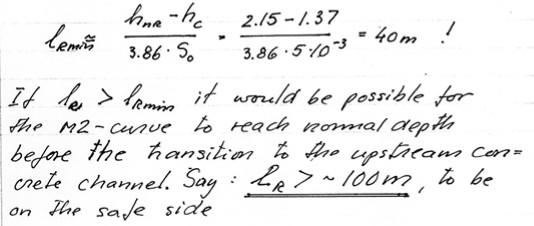 l_Rmin ≅ (h_nR - h_c) / (3.86 · S_0) = (2.15 - 1.37) / (3.86 · 5·10^-3) = 40m !
If l_R > l_Rmin it would be possible for
the M2-curve to reach normal depth
before the transition to the upstream con=
crete channel. Say : l_R > ~ 100m, to be
on the safe side